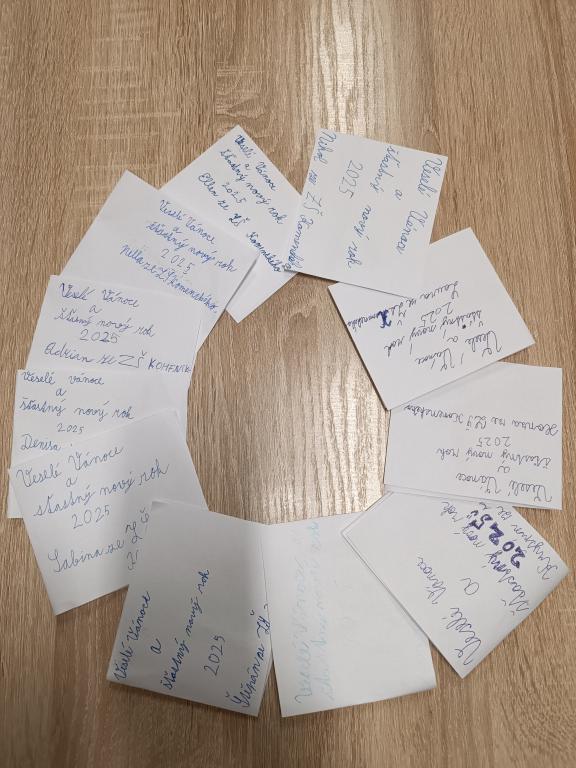 Veselé Vánoce
a
šťastný nový rok
2025
Ellen ze ZŠ Komenského
Veselé Vánoce
a
šťastný nový rok
2025
Nikč ze ZŠ
Veselé Vánoce
a
šťastný nový rok
2025
Laura ze ZŠ Komenského
Veselé Vánoce
a
šťastný nový rok
2025
ze ZŠ Komenského
Veselé Vánoce
a
šťastný nový rok
2025
ze
Veselé Vánoce
Veselé Vánoce
a
šťastný nový rok
2025
ze ZŠ
Veselé Vánoce
a
šťastný nový rok
2025
Sabina ze ZŠ
Veselé vánoce
a
šťastný nový rok
2025
Denisa
Veselé Vánoce
a
šťastný nový rok
2025
Adrian ze ZŠ KOMENK
Veselé Vánoce
a
šťastný nový rok
2025
Nella ze ZŠ Komenského.